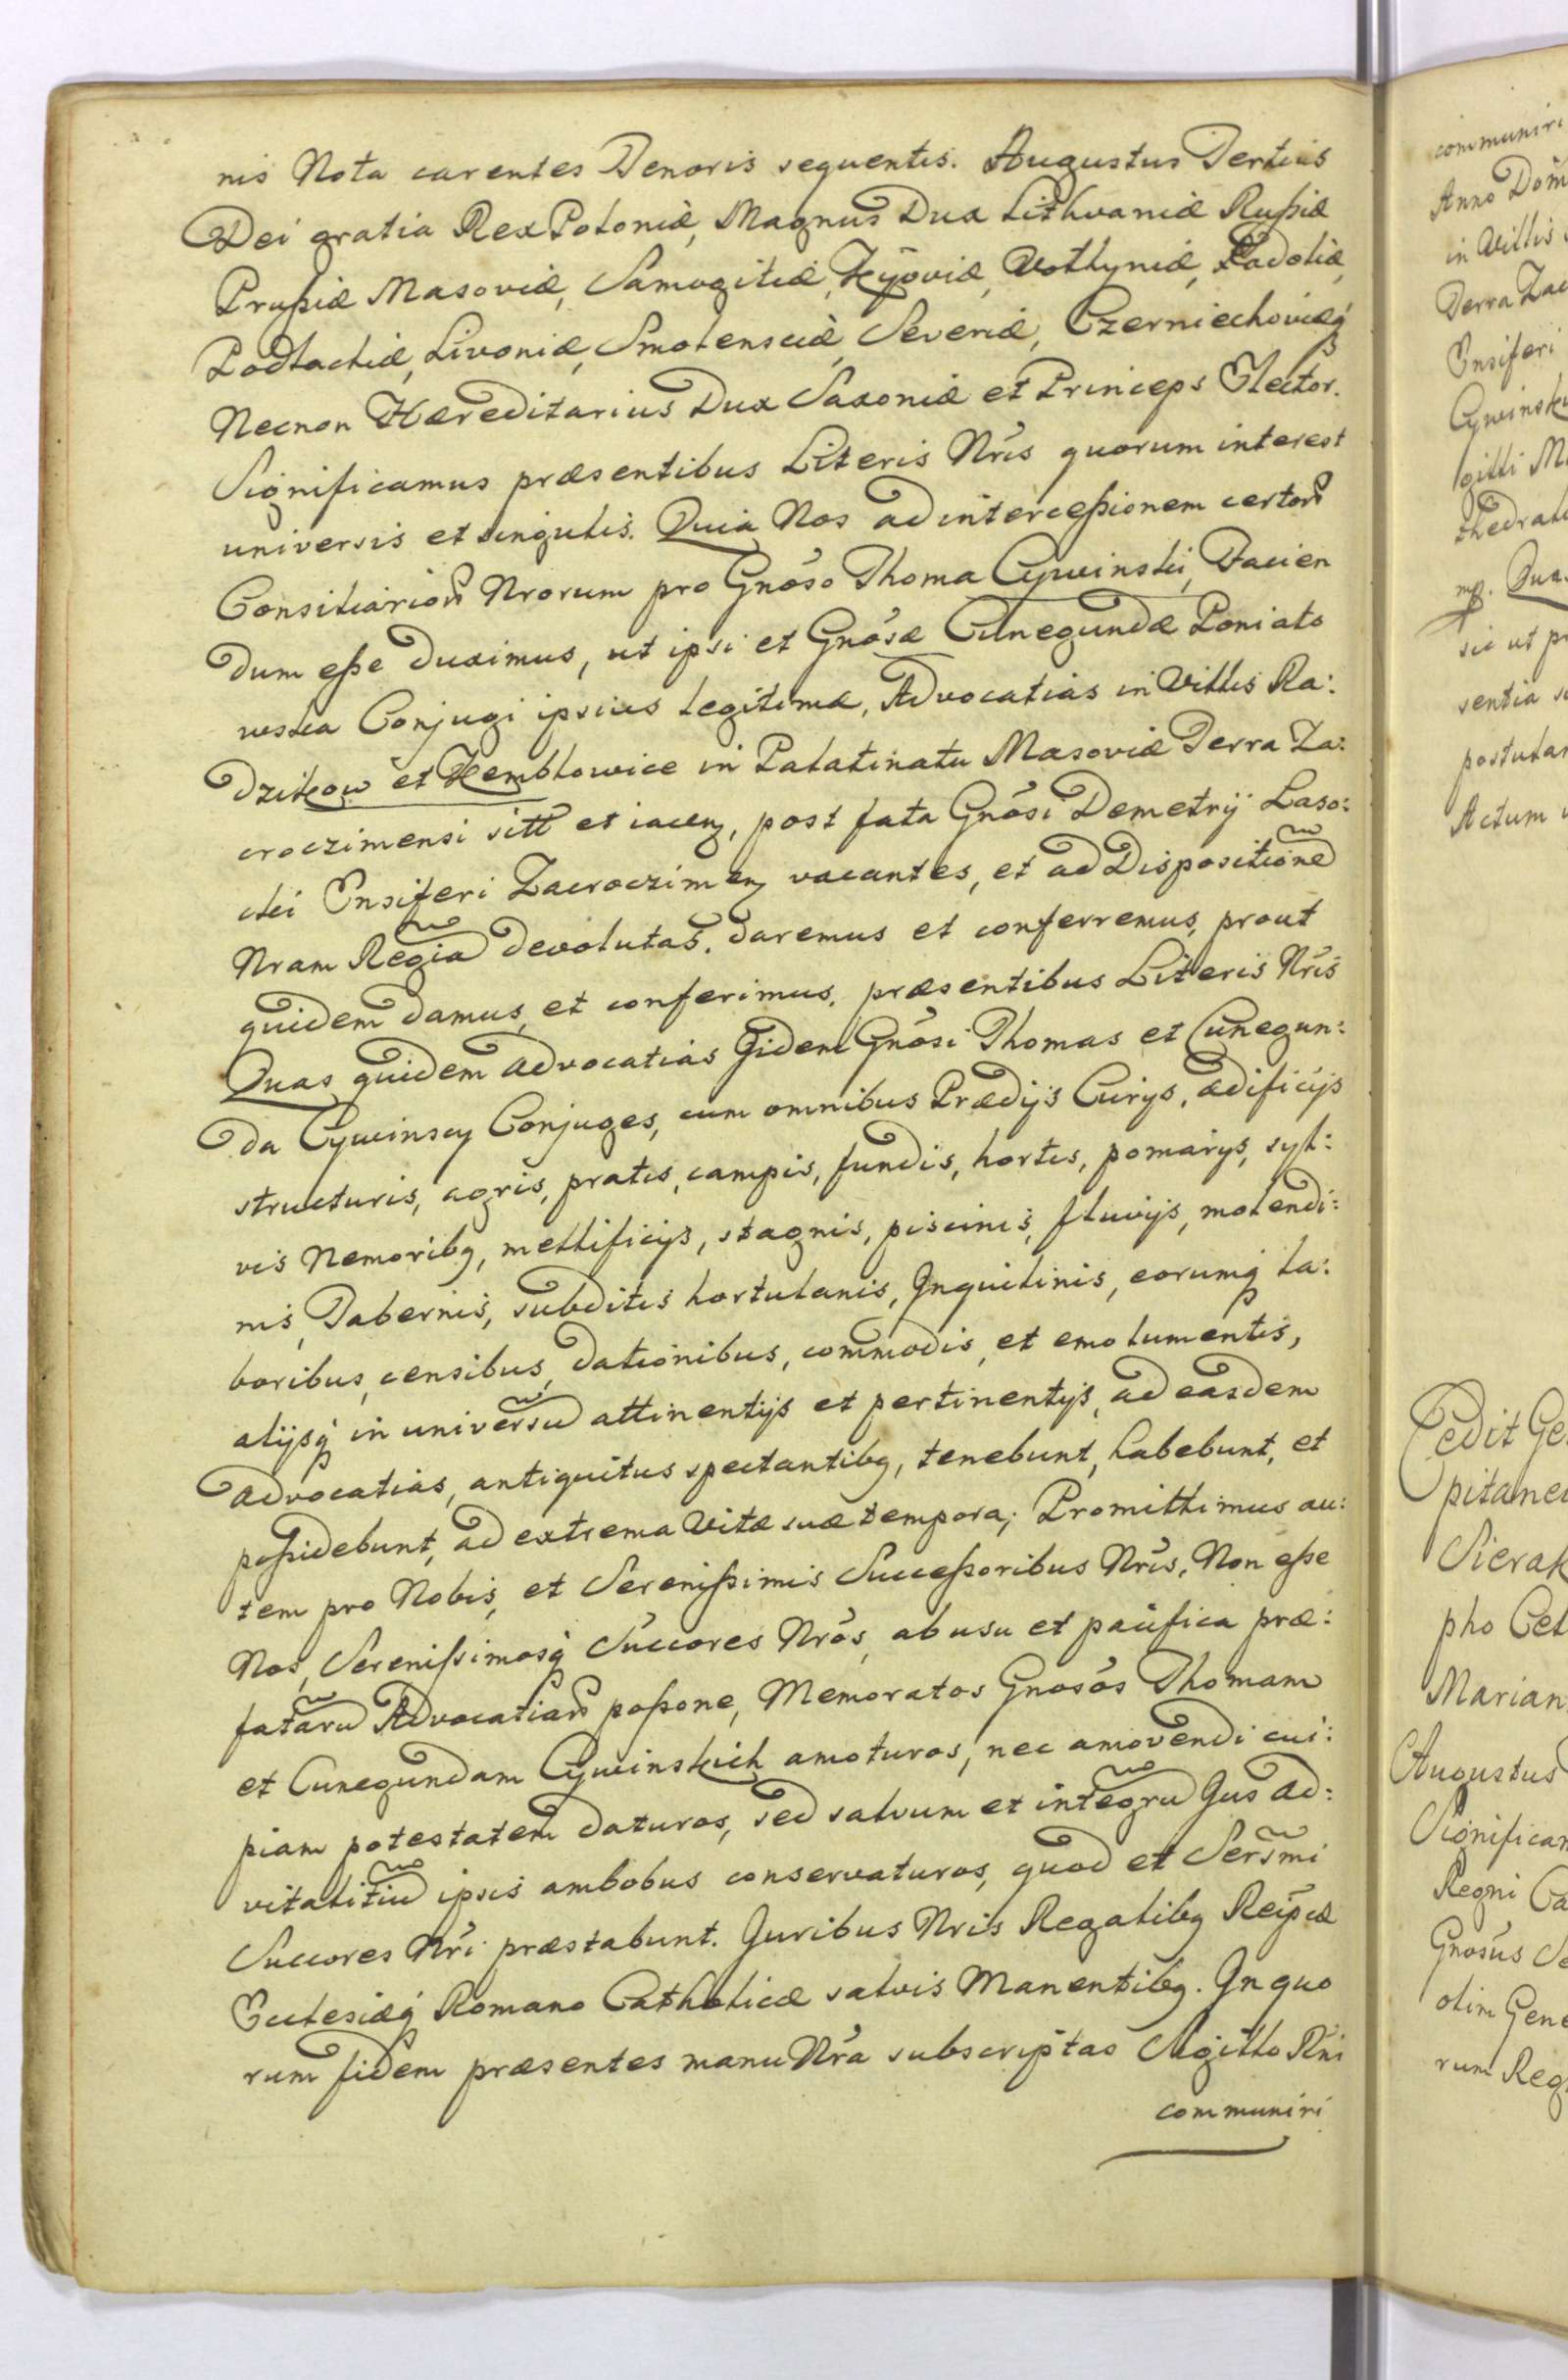 nis Nota carentes Tenoris sequentis. Augustus Tertius
Dei gratia Rex Poloniæ, Magnus Dux Lithvaniæ Rußiæ
Prußiæ Masoviæ, Samogitiæ, Kijoviæ, Volhyniæ, Podoliæ,
Podlachiæ, Livoniæ, Smolensciæ, Severiæ, Czerniechoviæq́
Necnon Hæreditarius Dux Saxoniæ et Princeps Elector.
Significamus præsentibus Literis Nris quorum interest
universis et singulis. Quia Nos ad interceßionem certorũ
Consiliariorũ Nrorum pro Gnoso Thoma Cywinski, Facien
dum eße duximus, ut ipsi et Gnosæ Cunegundæ Poniato
wska Conjugi ipsius legitimæ, Advocatias in Villis Ra:
dzikow et Kembłowice in Palatinatu Masoviæ Terra Za:
croczimensi sitt et iaceң, post fata Gnosi Demetrij Laso:
cki Ensiferi Zacroczimeң vacantes, et ad Dispositionẽ
Nram Regiã devolutas. daremus et conferremus, prout
quidem damus, et conferimus. præsentibus Literis Nris
Quas quidem advocatias Iidem Gnosi Thomas et Cunegun:
da Cywinscy Conjuges, cum omnibus Prædijs Curijs, ædificijs
structuris, agris, pratis, campis, fundis, hortis, pomarijs, syl:
vis Nemoribq, mellificijs, stagnis, piscinis, fluvijs, molendi:
nis, Tabernis, subditis hortulanis, Inquilinis, eorumq́ la:
boribus, censibus, dationibus, commodis, et emolumentis,
alijsq́ in universũ attinentijs et pertinentijs, ad easdem
advocatias, antiquitus spectantibq, tenebunt, habebunt, et
poßidebunt, ad extrema Vitæ suæ tempora; Promittimus au:
tem pro Nobis, et Serenißimis Succeßoribus Nris, Non eße
Nos, Serenißimosq́ Succores Nros, ab usu et pacifica præ:
fatarũ Advocatiarũ poßone, Memoratos Gnosos Thomam
et Cunegundam Cywinskich amoturos, nec amovendi cui:
piam potestatem daturos, sed salvum et integrũ Jus ad:
vitalitiũ ipsis ambobus conservaturos, quod et Sermi
Succores Nri præstabunt. Juribus Nris Regalibq Reipcæ
Ecclesiæq́ Romano Catholicæ salvis Manentibq. In quo
rum fidem præsentes manu Nra subscriptas Sigillo Rni
communiri
communiri
Anno Dom
in Villis
Terra Zac
Ensiferi
Cywinsk
gilli
thedral
mp. Quas
sic ut
sentia
postular
Actum
Cedit Ge
pitanei
Sierak
pho Cel
Marian
Augustus
Significam
Regni Ca
Gnosus
olim Gene
rum Reg